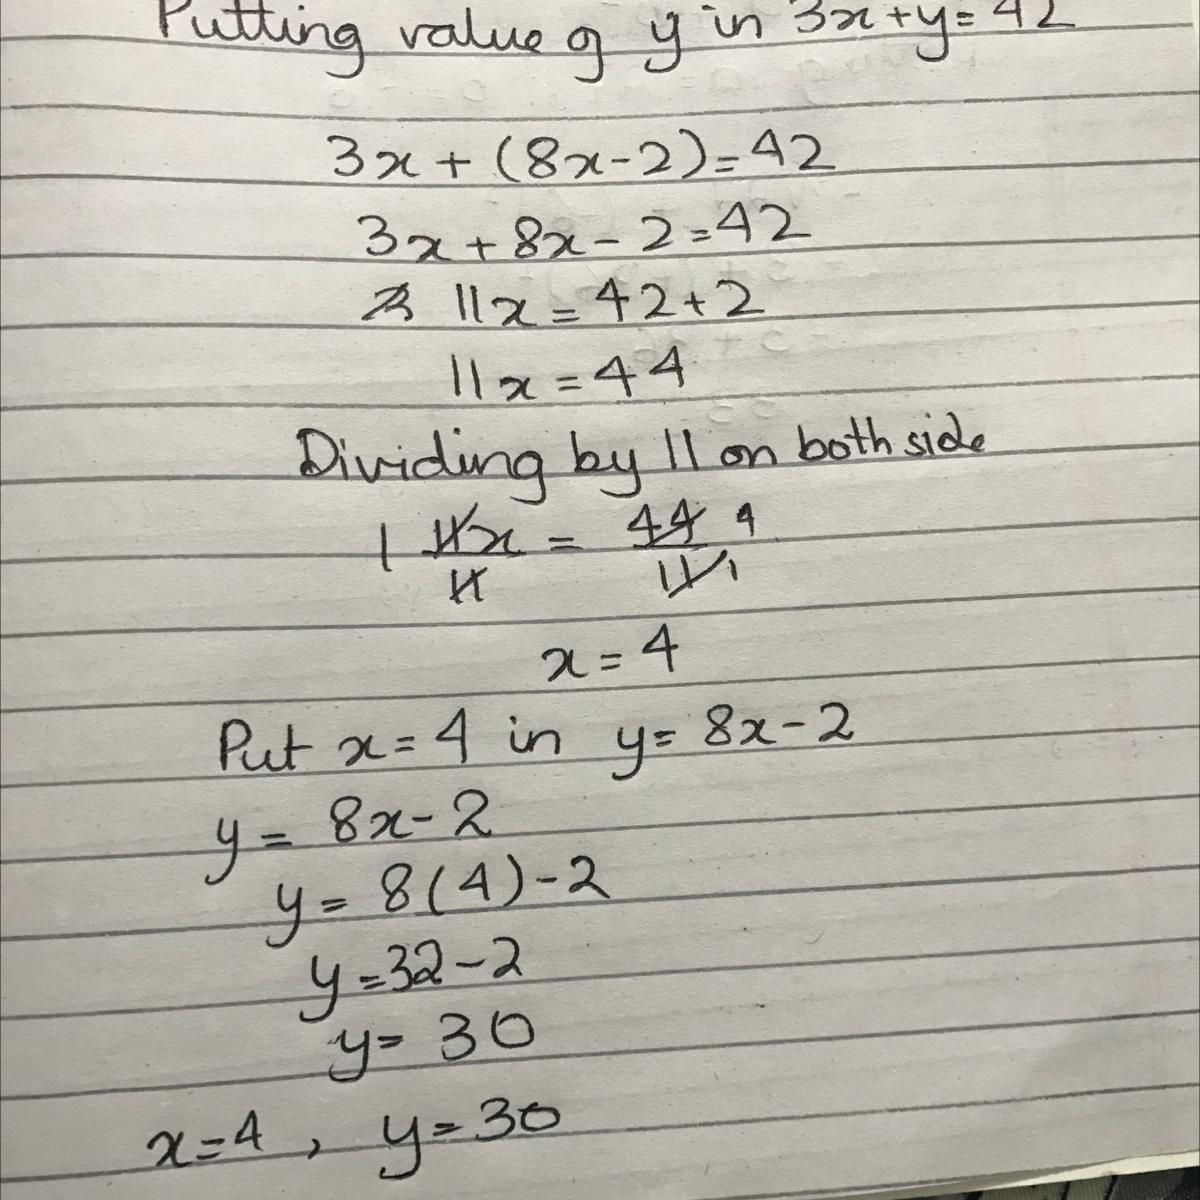 Putting value of y in 3x+y=42
3x + (8x-2)=42
3x+8x-2=42
11x=42+2
11x=44
Dividing by 11 on both side
1 11x/11 = 44/11 4 1
x=4
Put x=4 in y=8x-2
y=8x-2
y=8(4)-2
y=32-2
y=30
x=4, y=30